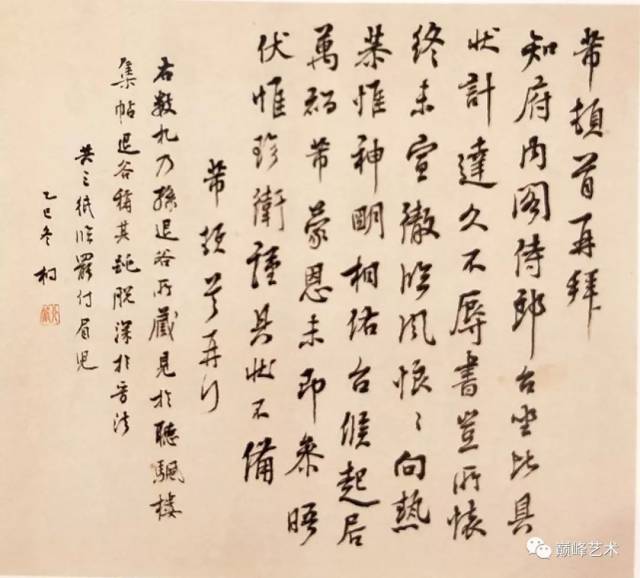 芾頓首再拜
知府內閣侍郎台坐比具
狀計達久不辱書豈所懷
終未宣徹臨風悵〻向熱
恭惟神明相佑台候起居
萬福芾蒙恩未即參晤
伏惟珍衛謹具狀不備
芾頓首再拜
右數札乃孫退谷所藏見於聽颿樓
集帖退谷稱其脫深於晉法
共三紙臨罷付眉兒
乙巳冬
巅峰艺术